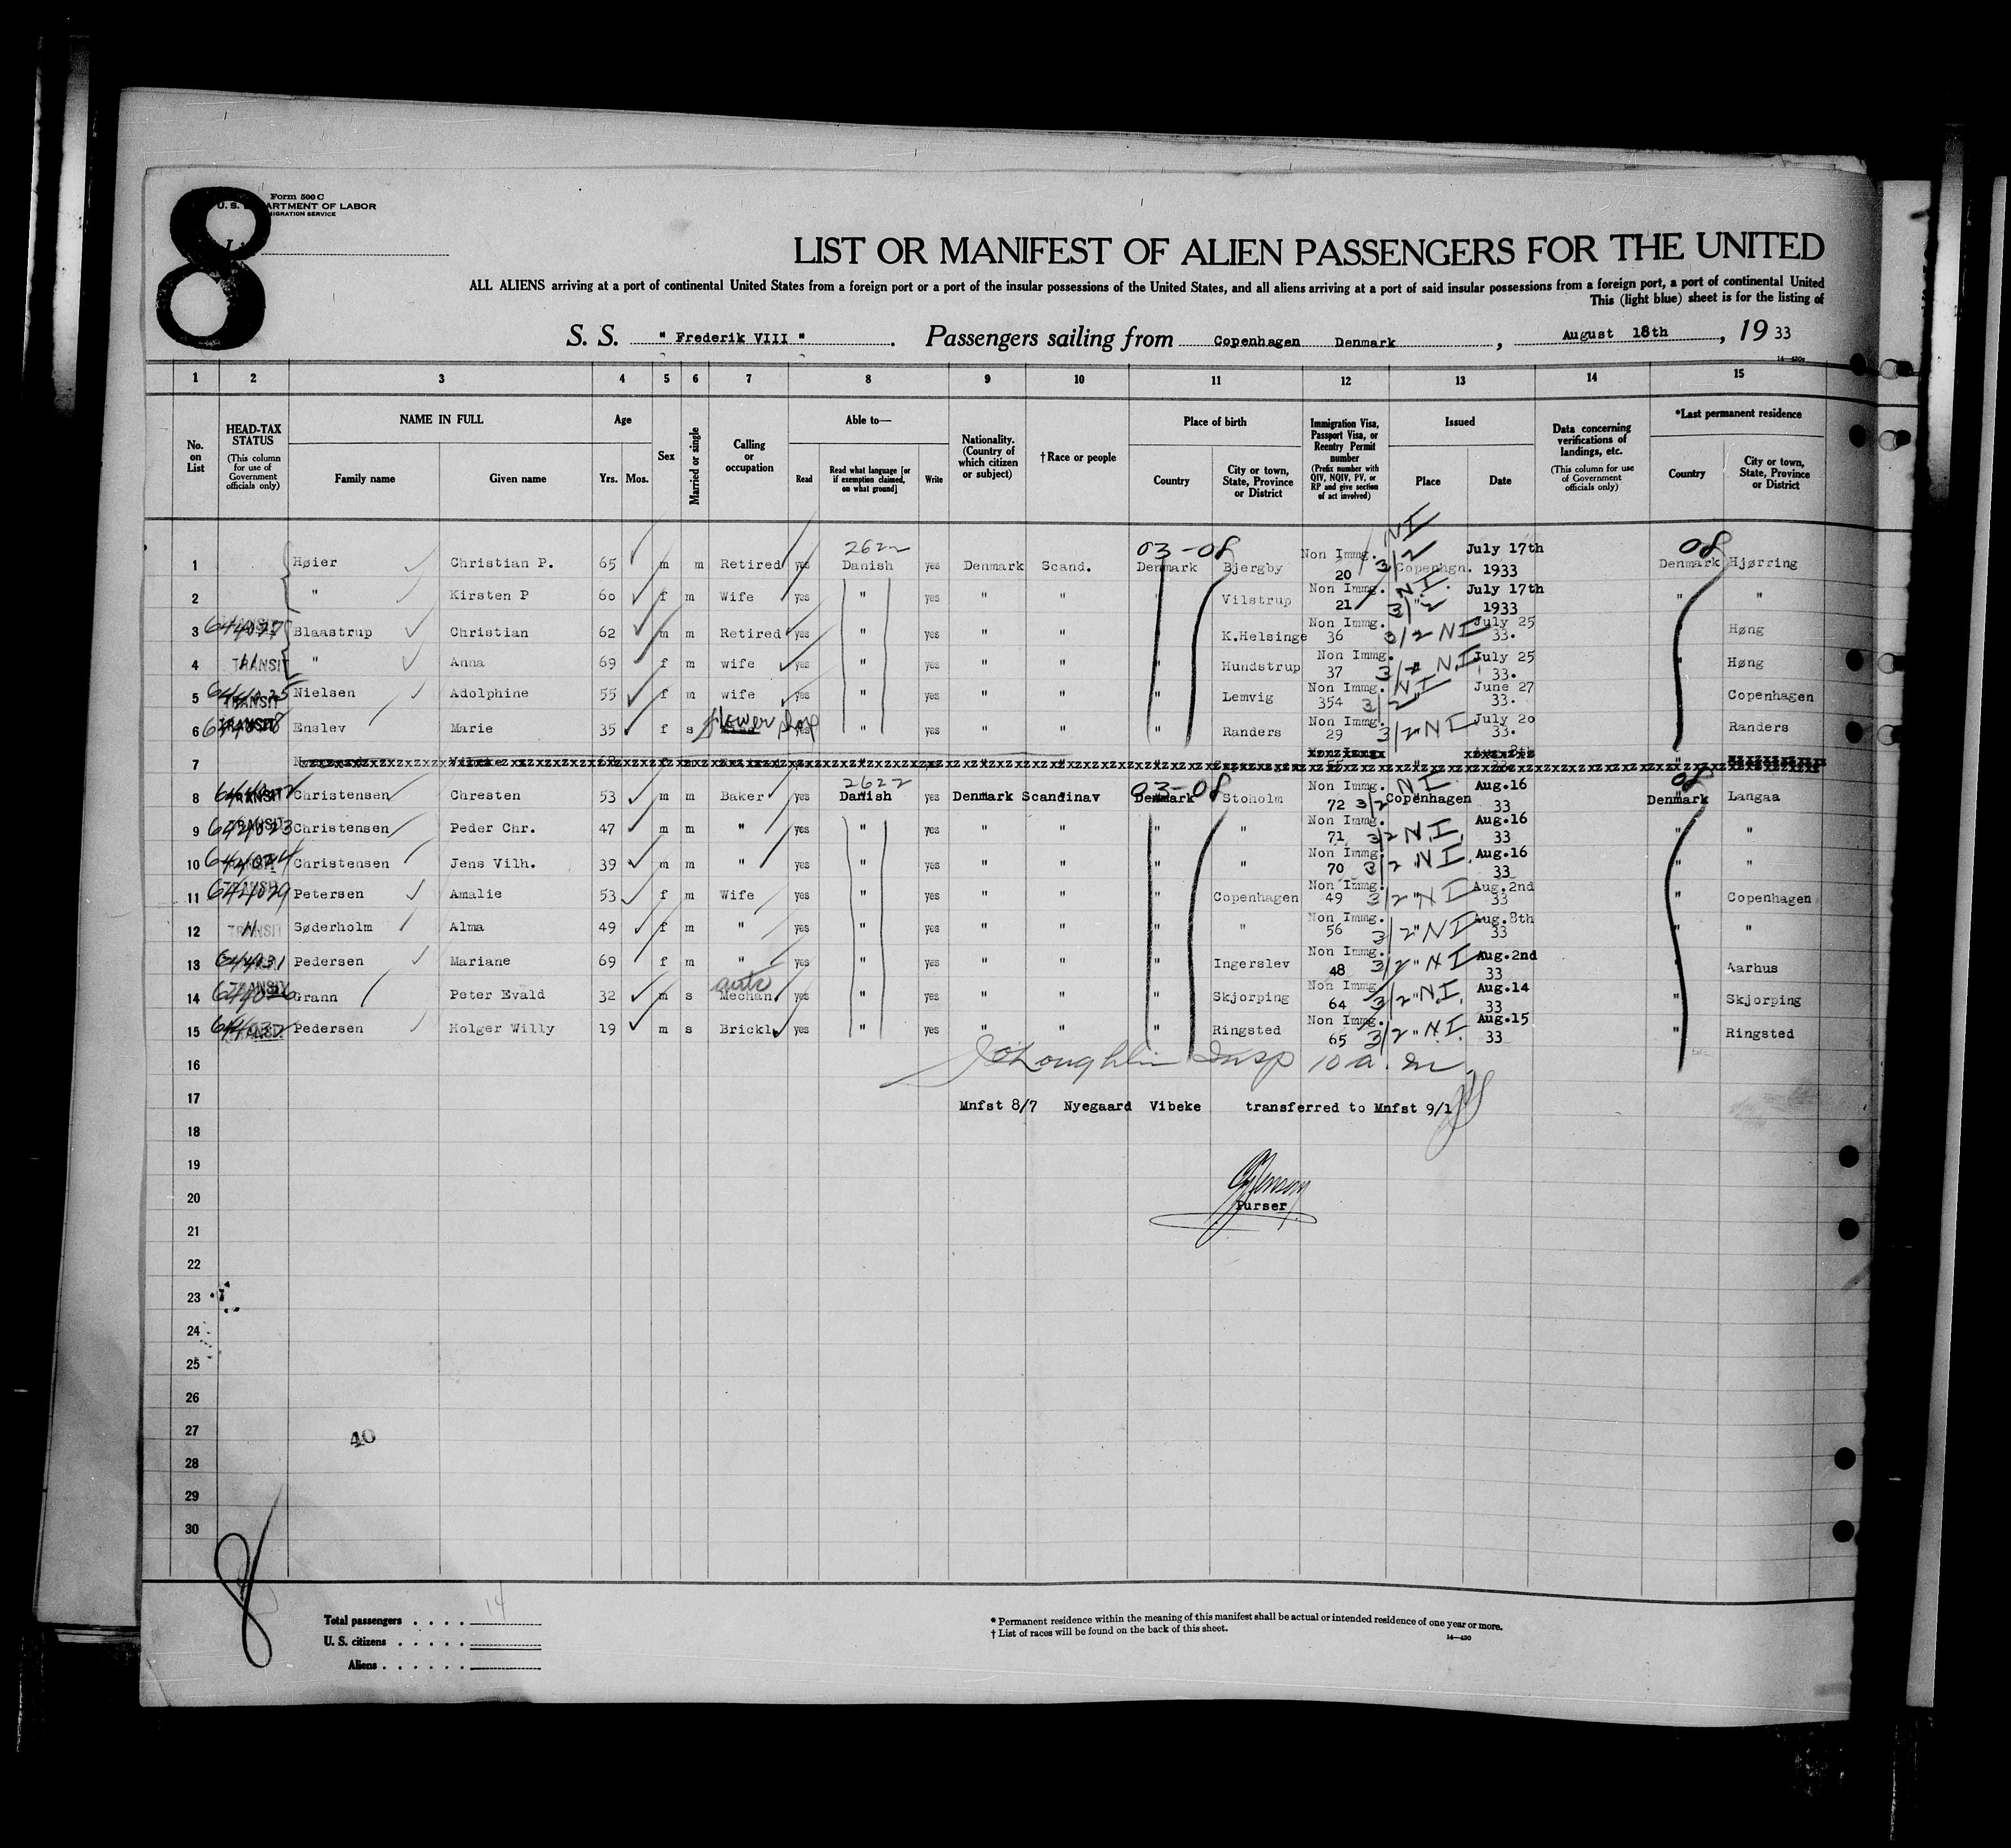 8
Form 500 C
U. S. DEPARTMENT OF LABOR
IMMIGRATION SERVICE
LIST OR MANIFEST OF ALIEN PASSENGERS FOR THE UNITED
ALL ALIENS arriving at a port of continental United States from a foreign port or a port of the insular possessions of the United States, and all aliens arriving at a port of said insular possessions from a foreign port, a port of continental United
This (light blue) sheet is for the listing of
S. S. " Frederik VIII " . Passengers sailing from Copenhagen Denmark , August 18th , 19 33
14—430a
1 2 3 4 5 6 7 8 9 10 11 12 13 14 15
No. on List
HEAD-TAX STATUS (This column for use of Government officials only)
NAME IN FULL Family name Given name
Age Yrs. Mos.
Sex
Married or single
Calling or occupation
Able to— Read Read what language [or if exemption claimed, on what ground] Write
Nationality. (Country of which citizen or subject)
†Race or people
Place of birth Country City or town, State, Province or District
Immigration Visa, Passport Visa, or Reentry Permit number (Prefix number with QIV, NQIV, PV, or RP and give section of act involved)
Issued Place Date
Data concerning verifications of landings, etc. (This column for use of Government officials only)
*Last permanent residence Country City or town, State, Province or District
2622 03-08 NI 08
1 Høier Christian P. 65 m m Retired yes Danish yes Denmark Scand. Denmark Bjergby Non Immg. 20 3/2 Copenhgn. July 17th 1933 Denmark Hjørring
2 " Kirsten P 60 f m Wife yes " yes " " " Vilstrup Non Immg. 21 3/2 N.I. " July 17th 1933 " "
3 Blaastrup Christian 62 m m Retired yes " yes " " " K.Helsinge Non Immg. 36 3/2 NI July 25 33. " Høng
4 " TRANSIT " Anna 69 f m wife yes " yes " " " Hundstrup Non Immg. 37 3/2 N.I. July 25 33. " Høng
5 644025 TRANSIT Nielsen Adolphine 55 f m wife yes " yes " " " Lemvig Non Immg. 354 3/2 NI " June 27 33. " Copenhagen
6 TRANSIT Enslev Marie 35 f s flower shop yes " yes " " " Randers Non Immg. 29 3/2 " NI July 20 33. " Randers
7
2622 03-08 NI 08
8 TRANSIT Christensen Chresten 53 m m Baker yes Danish yes Denmark Scandinav Denmark Stoholm Non Immg. 72 3/2 Copenhagen Aug.16 33 Denmark Langaa
9 644023 TRANSIT Christensen Peder Chr. 47 m m " yes " yes " " " " Non Immg. 71 3/2 N.I. Aug.16 33 " "
10 644024 Christensen Jens Vilh. 39 m m " yes " yes " " " " Non Immg. 70 3/2 N.I. Aug.16 33 " "
11 644029 TRANSIT Petersen Amalie 53 f m Wife yes " yes " " " Copenhagen Non Immg. 49 3/2 " NI Aug.2nd 33 " Copenhagen
12 " TRANSIT Søderholm Alma 49 f m " yes " yes " " " " Non Immg. 56 3/2 " NI Aug.8th 33 " "
13 644031 Pedersen Mariane 69 f m " yes " yes " " " Ingerslev Non Immg. 48 3/2 " NI Aug.2nd 33 " Aarhus
14 TRANSIT Grann Peter Evald 32 m s auto Mechan. yes " yes " " " Skjorping Non Immg. 64 3/2 " N.I. Aug.14 33 " Skjorping
15 TRANSIT Pedersen Holger Willy 19 m s Brickl. yes " yes " " " Ringsted Non Immg. 65 3/2 " N.I. Aug.15 33 " Ringsted
16 J O'Loughlin Insp 10 a. m.
17 Mnfst 8/7 Nyegaard Vibeke transferred to Mnfst 9/1
18
19
20 Purser
21
22
23
24
25
26
27 40
28
29
30
8
Total passengers . . . . 14
U. S. citizens . . . . .
Aliens . . . . . .
* Permanent residence within the meaning of this manifest shall be actual or intended residence of one year or more.
† List of races will be found on the back of this sheet.
14—430